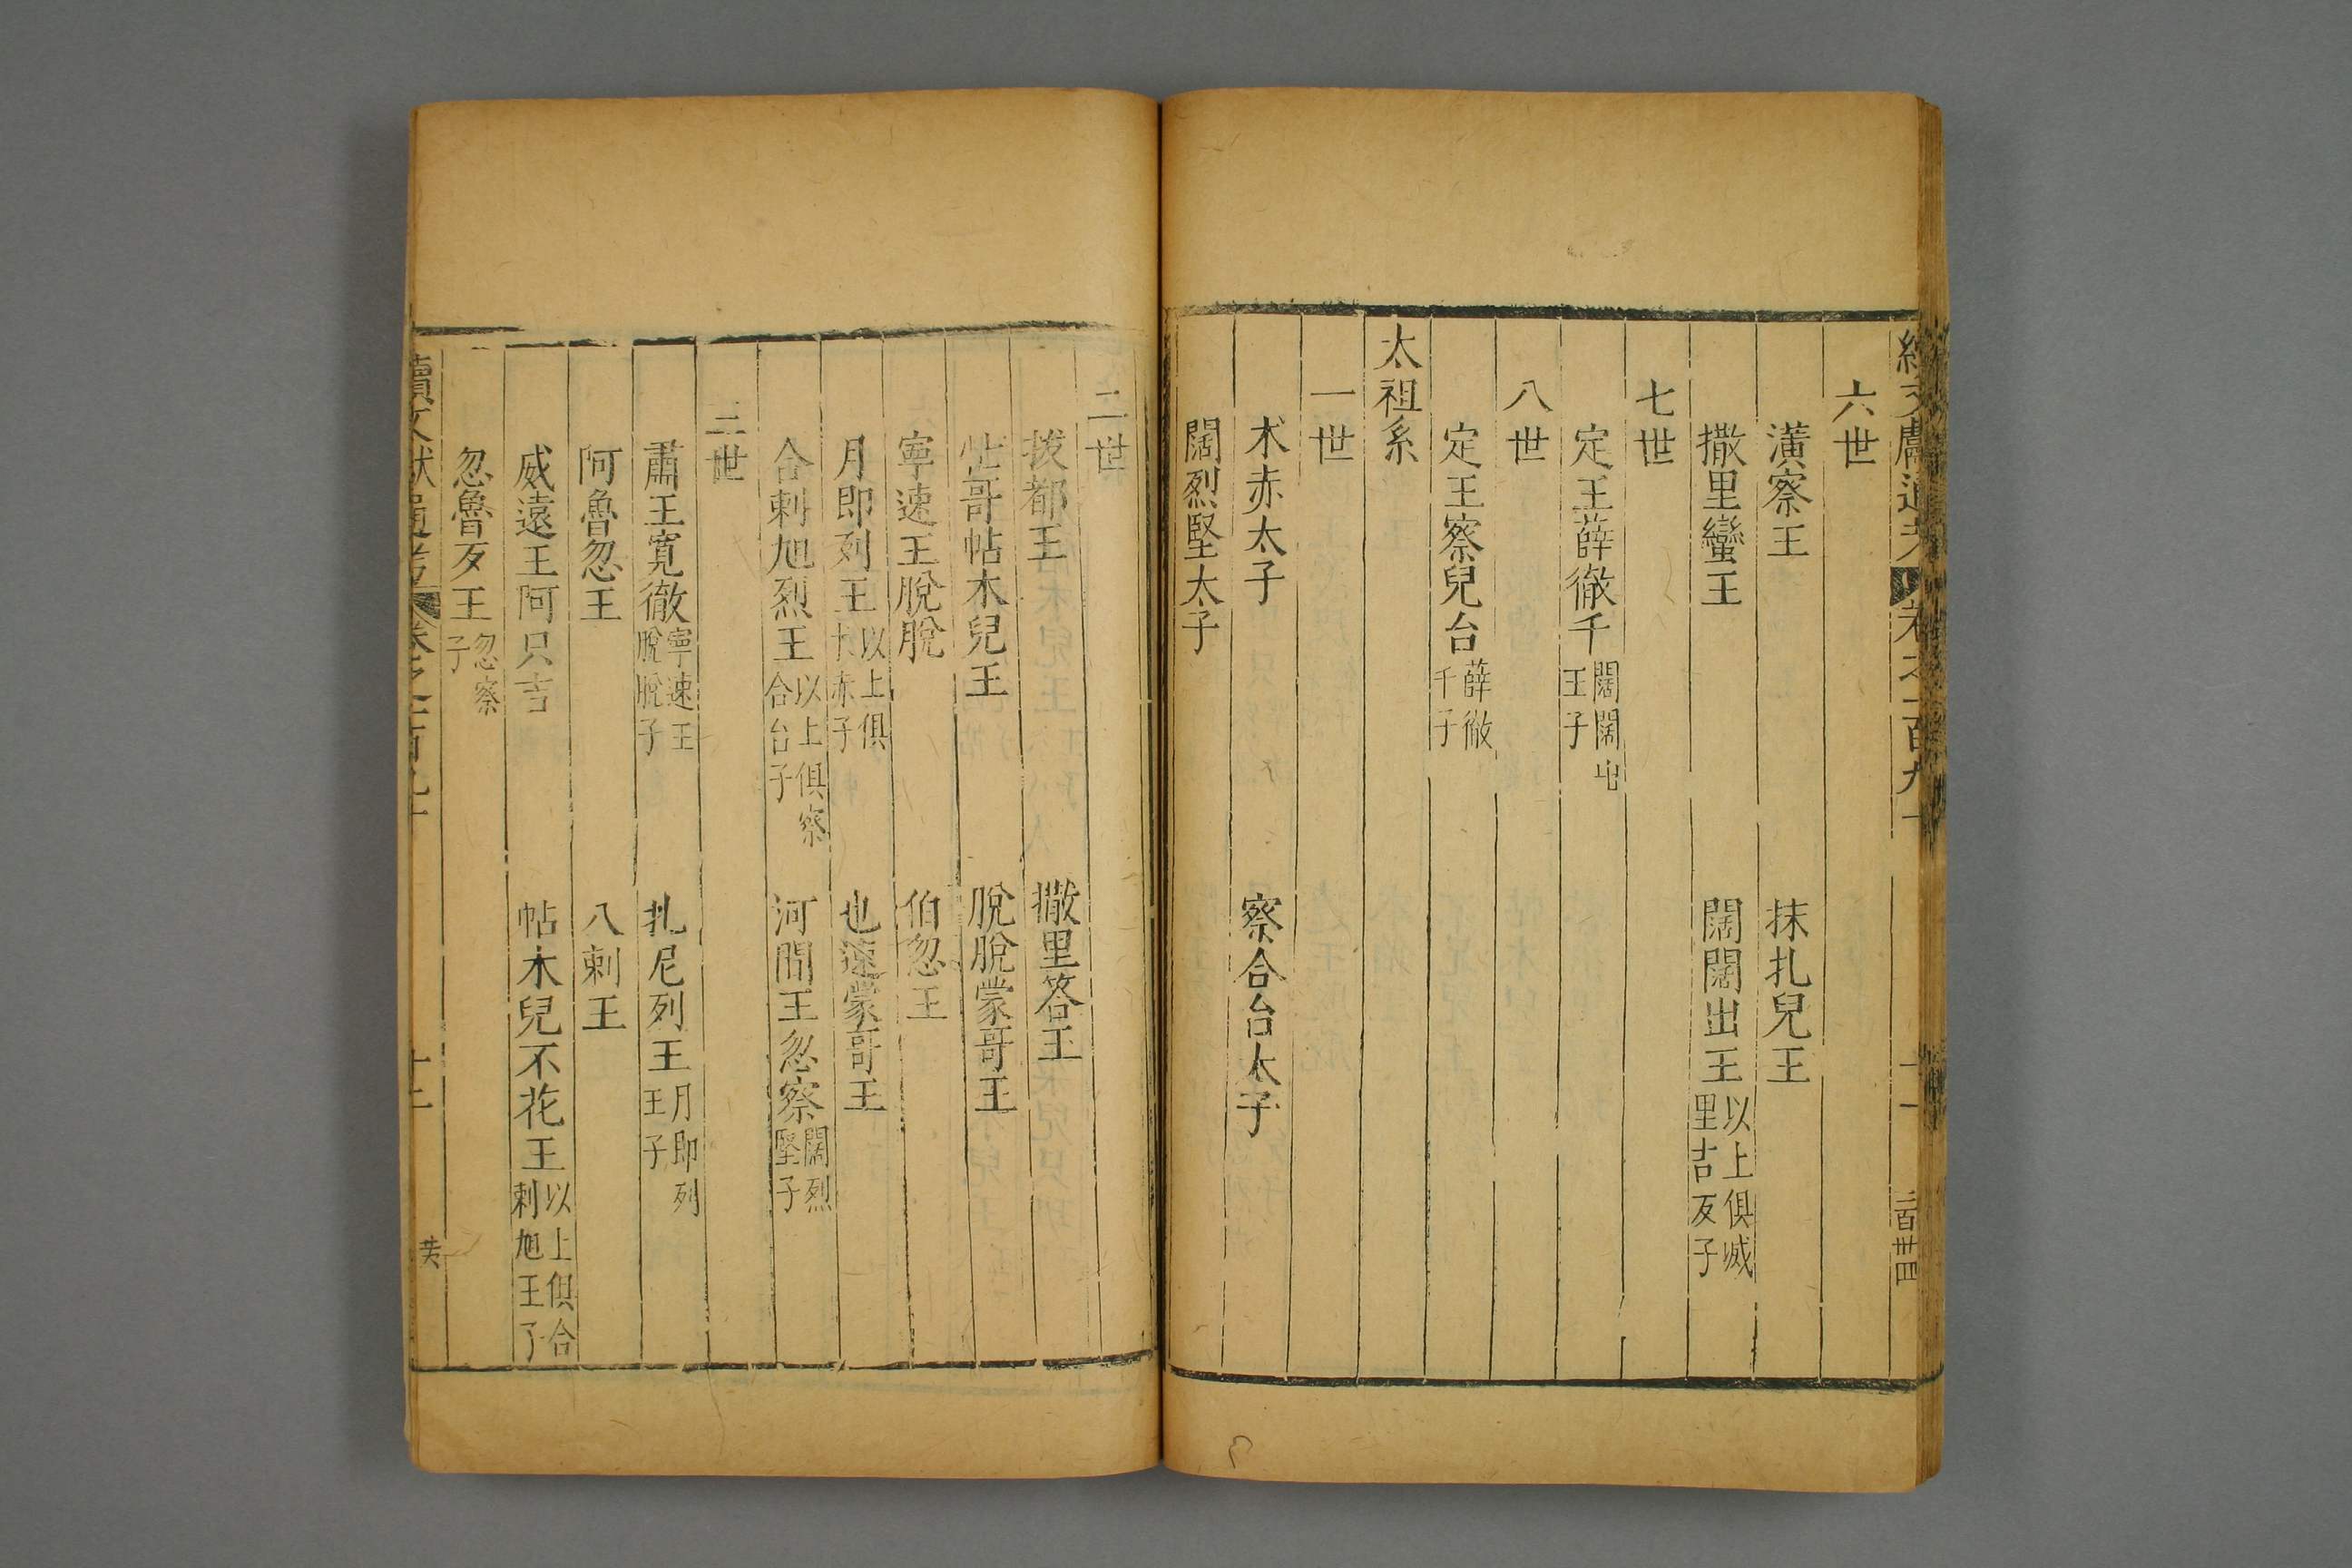 續文獻通考 卷之二百九十 十一 二百卅四
六世
潢察王 抹扎兒王
撒里蠻王 闊闊出王 以上俱滅里吉歹子
七世
定王薛徹千 闊闊出王子
八世
定王察兒台 薛徹千子
太祖系
一世
朮赤太子 察合台太子
闊烈堅太子
二世
拔都王 撒里答王
忙哥帖木兒王 脫脫蒙哥王
寧速王脫脫 伯忽王
月即列王 以上俱朮赤子 也速蒙哥王
合剌旭烈王 以上俱察合台子 河間王忽察 闊烈堅子
三世
肅王寬徹 寧速王脫脫子 扎尼列王 月即列王子
阿魯忽王 八剌王
威遠王阿只吉 帖木兒不花王 以上俱合剌旭王子
忽魯歹王 忽察子
續文獻通考 卷之二百九十 十二 共